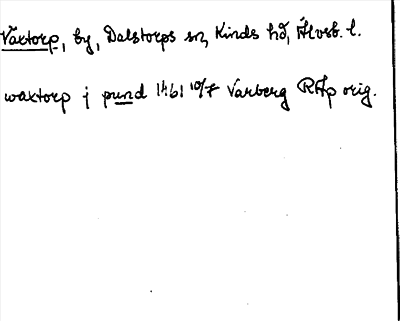 Växtorp, by, Dalstorps sn, Kinds hd, Älvsb. l.
waxtorp j pund 1461 10/7 Varberg RAp orig.